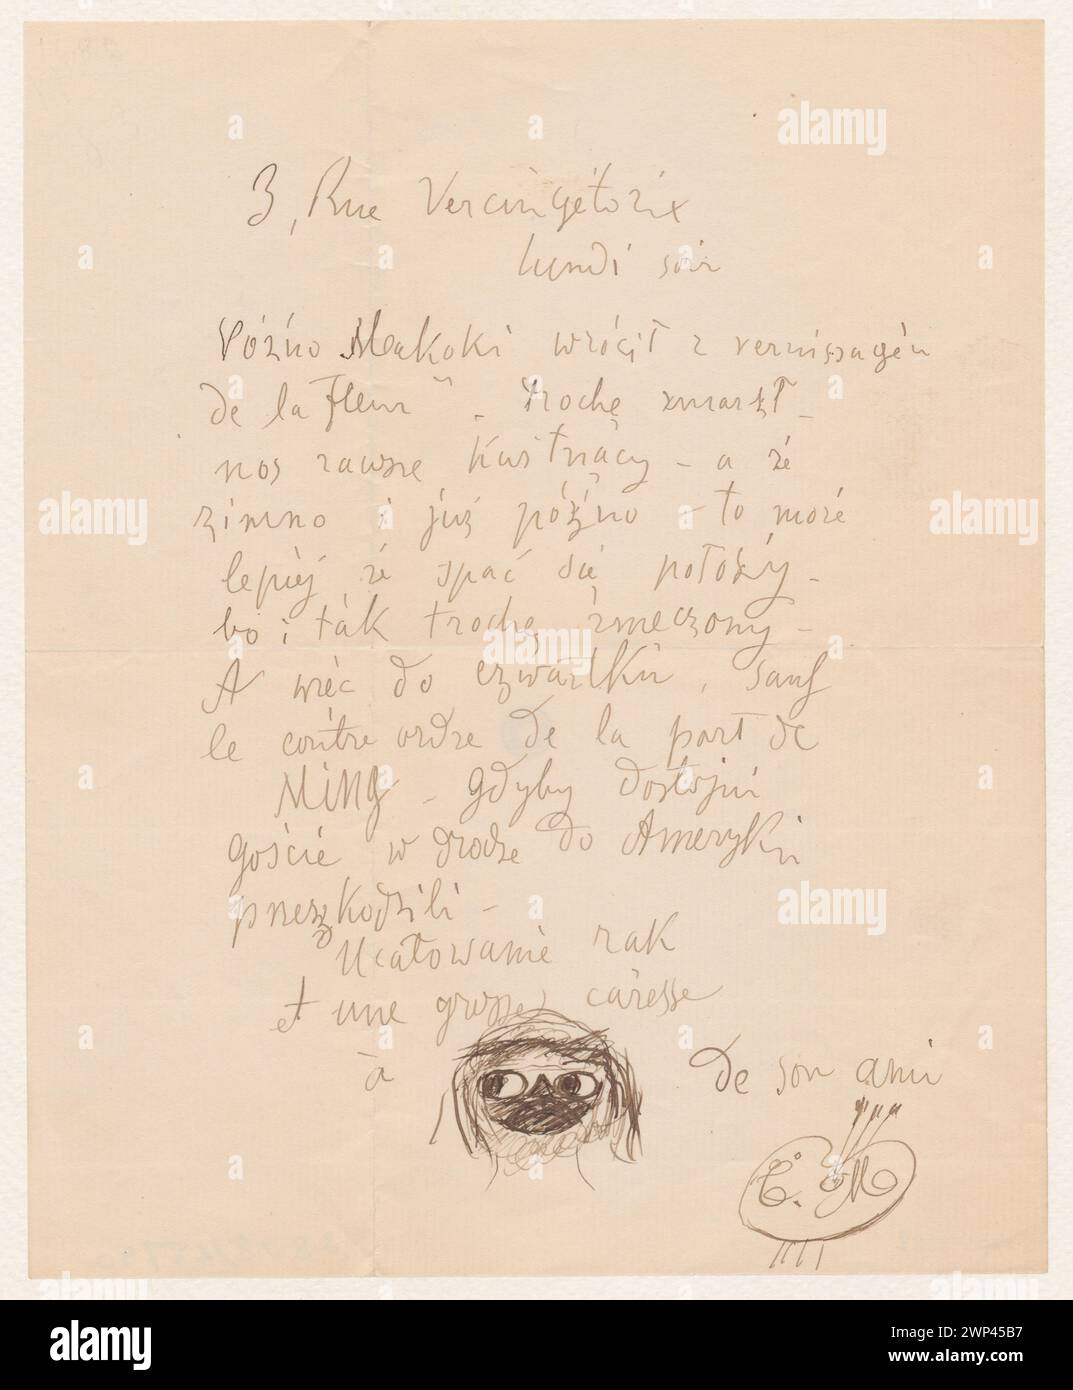 3, Rue Vercingétorix
lundi soir
Późno Makoki wrócił z vernissagén
de la Fleur" - trochę zmarzł -
nos zawsze kwitnący - a że
zimno i już późno - to może
lepiéj że spać się położy -
bo i ták trochę zmęczony -
A więc do czwartku, sauf
le contre ordre de la part de
MING - gdyby dostojni
goście w drodze do Ameryki
przeszkodzili -
Ucałowanie rak
et une grosse caresse
à de son ami
E. M
alamy
Image ID: 2WP45B7
www.alamy.com